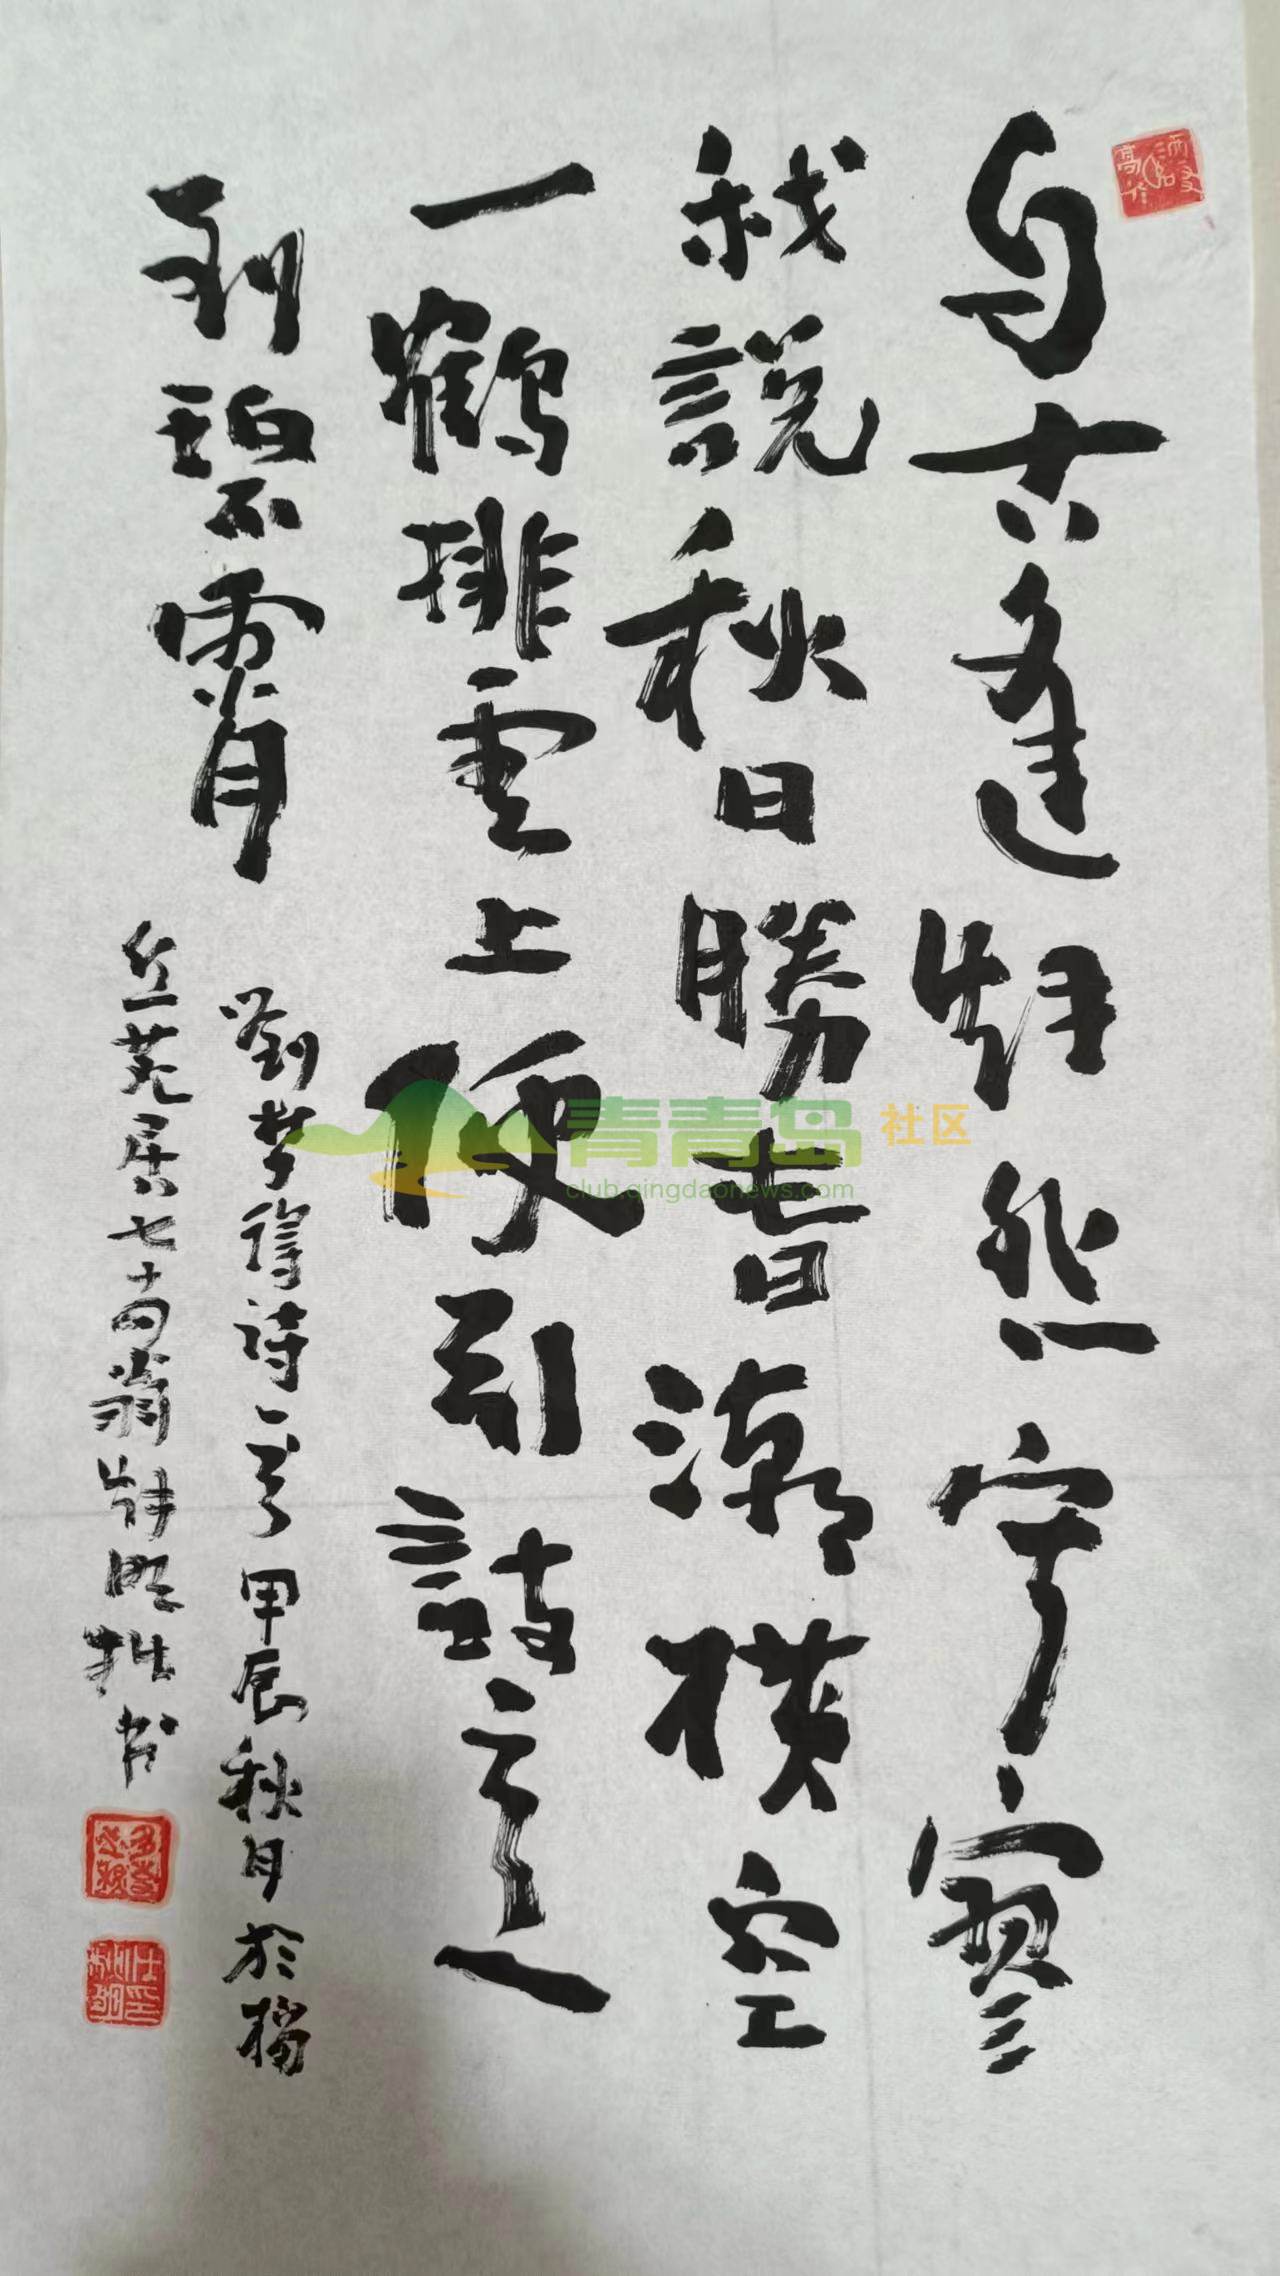 自古逢悲寂寥
我說秋日勝春潮橫空
一鶴排雲上便引詩
到碧霄
劉夢得詩一首甲辰秋月於
苑居七十翁拙书
青青岛社区
club.qingdaonews.com